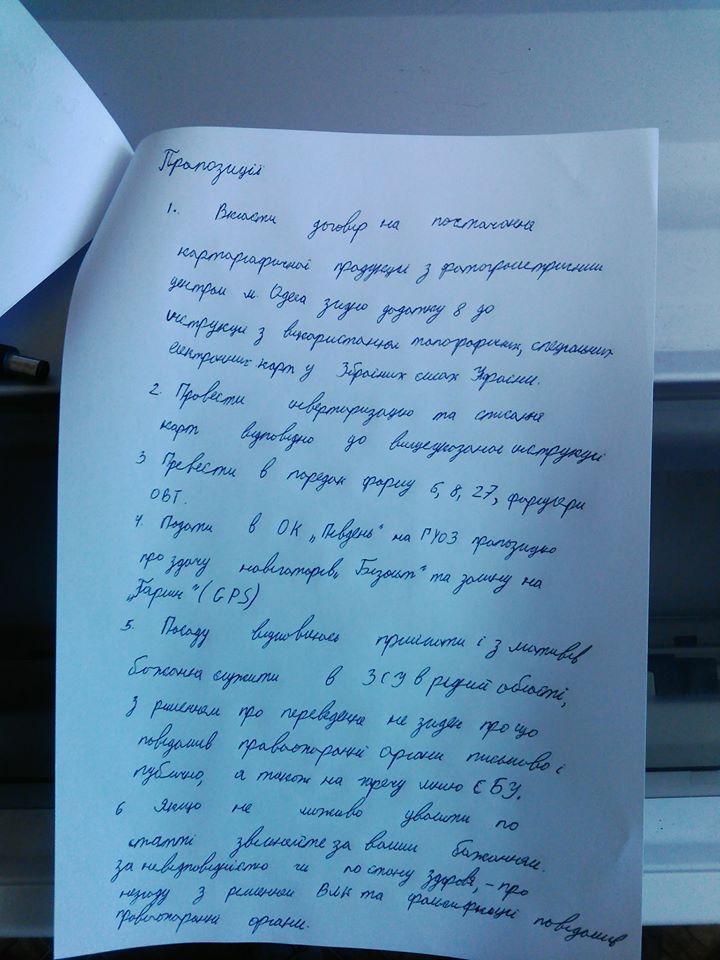 Пропозиції
1. Вкласти договір на постачання
картографічної продукції з фотограметричним
центром м. Одеса згідно додатку 8 до
інструкції з використання топографічних, спеціальних
електронних карт у Збройних силах України.
2. Провести інвертаризацію та списання
карт відповідно до вищеуказаної інструкції
3 Превести в порядок форму 6, 8, 27, формуляри
ОВТ.
4. Подати в ОК „Південь" на ГУОЗ пропозицію
про здачу навігаторів „Базальт" та заміну на
„Гармін" (GPS)
5. Посаду відмовляюсь приймати і з мотивів
бажання служити в ЗСУ в рідній області,
З рішенням про переведення не згоден про що
повідомив правоохоронні органи письмово і
публічно, а також на гарячу лінію СБУ.
6 Якщо не можливо уволити по
статті звільняйте за вашим бажанням.
за невідповідністю чи по стану здоровя, - про
незгоду з рішенням ВЛК та фальсифікації повідомив
правоохоронні органи.